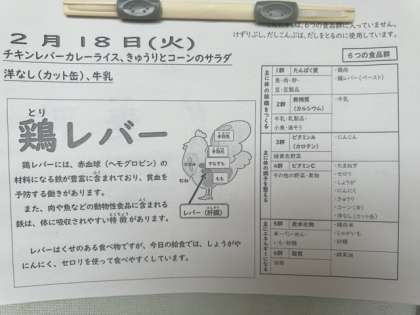 、６つの食品群に入っていません。
けずりぶし、だしこんぶは、だしをとるのに使用しています。
２月１８日(火)
チキンレバーカレーライス、きゅうりとコーンのサラダ
洋なし(カット缶)、牛乳
６つの食品群
とり
鶏レバー
鶏レバーには、赤血球(ヘモグロビン)の
材料になる鉄が豊富に含まれており、貧血を
予防する働きがあります。
また、肉や魚などの動物性食品に含まれる
鉄は、体に吸収されやすい特徴があります。
レバーはくせのある食べ物ですが、今日の給食では、しょうがや
にんにく、セロリを使って食べやすくしています。
レバー(肝臓)
もも
1群 たんぱく質
魚・肉・卵・
豆・豆製品
・鶏肉
・鶏レバー(ペースト)
2群 無機質
(カルシウム)
牛乳・乳製品・
小魚・海そう
・牛乳
3群 ビタミンA
(カロテン)
緑黄色野菜
・にんじん
4群 ビタミンC
その他の野菜・果物
・たまねぎ
・セロリ
・しょうが
・にんにく
・きゅうり
・コーン(冷)
・洋なし(カット缶)
5群 炭水化物
米・パン・めん・
いも・砂糖
・精白米
・じゃがいも
・砂糖
6群 脂質
油脂